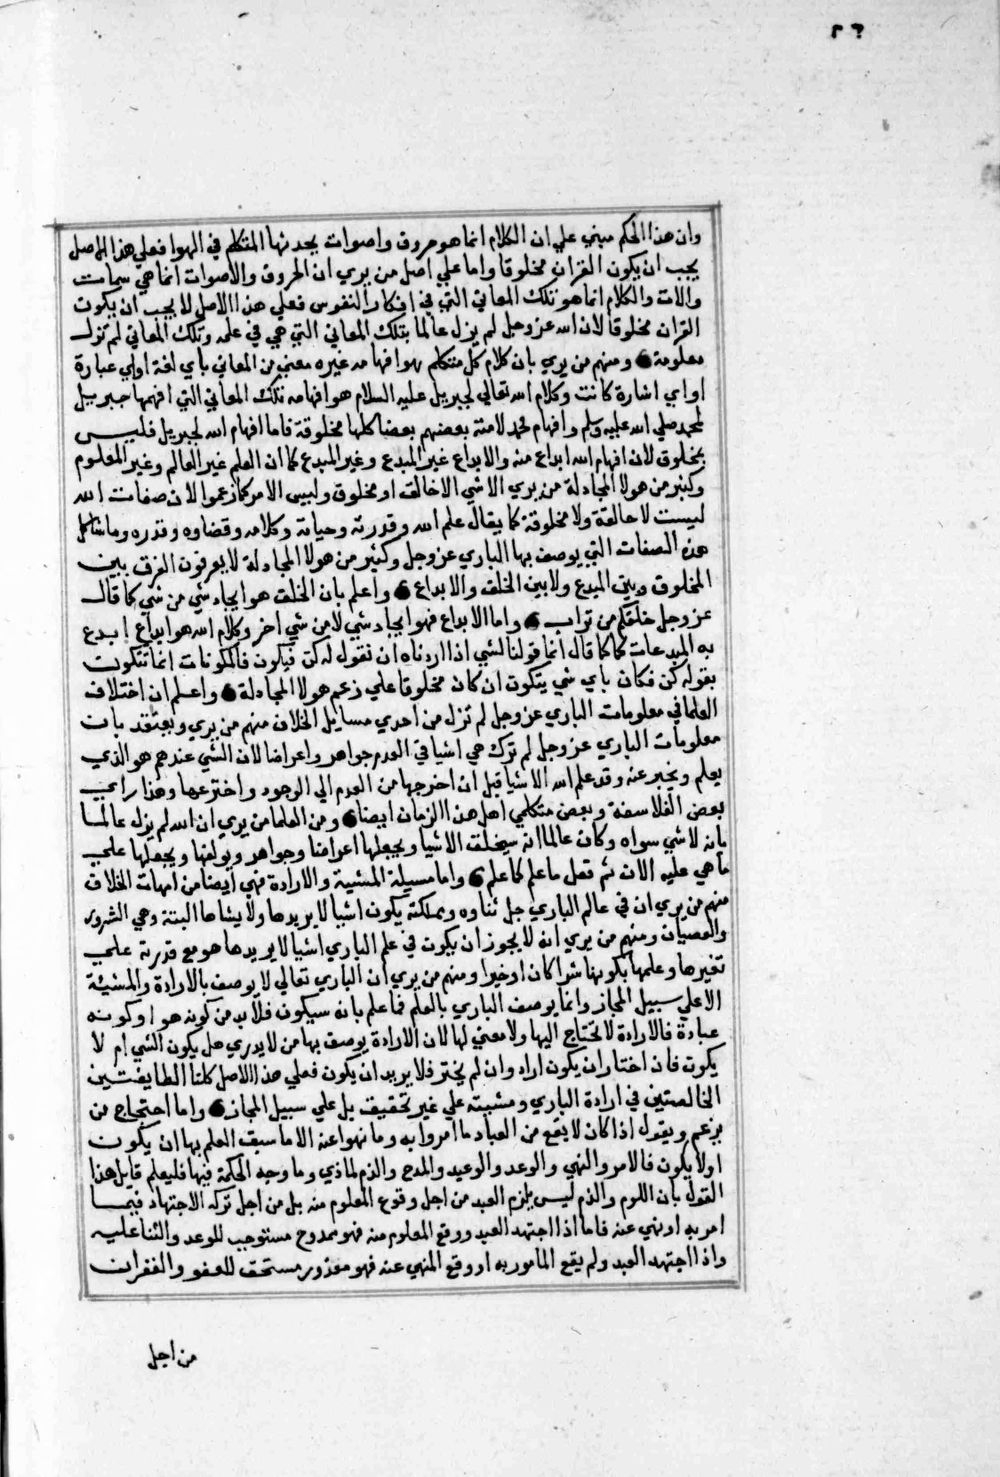 ٢٦
وان هذا الحكم مبني علي ان الكلام انما هو حروف واصوات يحدثها المتكلم في الهوا فعلي هذا الاصل
يجب ان يكون القران مخلوقا واما علي اصل من يري ان الحروف والاصوات انما هي سمات
والات والكلام انما هو تلك المعاني التي في افكار النفوس فعلي هذا الاصل لا يجب ان يكون
القران مخلوقا لان الله عز وجل لم يزل عالما بتلك المعاني التي هي في علمه وتلك المعاني لم تزل
معلومة ومنهم من يري بان كلام كل متكلم هو افهامه غيره معني من المعاني باي لغة او باي عبارة
او اي اشارة كانت وكلام الله تعالي لجبريل عليه السلام هو افهامه تلك المعاني التي افهمها جبريل
لمحمد صلي الله عليه وسلم وافهام محمد لامته بعضهم بعضا كلها مخلوقة فاما افهام الله لجبريل فليس
بخلوق لان افهام الله ابداع منه والابداع غير المبدع وغير المبدع كما ان العلم غير العالم وغير المعلوم
وكثير من هولا المجادلة من يري الاشي الا خالق او مخلوق وليس الامر كما زعموا لان صفات الله
ليست لا خالقة ولا مخلوقة كما يقال علم الله وقدرته وحياته وكلامه وقضاوه وقدره وما شاكل
هذه الصفات التي يوصف بها الباري عز وجل وكثير من هولا المجادلة لا يعرفون الفرق بين
المخلوق وبين المبدع ولا بين الخلق والابداع واعلم بان الخلق هو ايجاد شي من شي كما قال
عز وجل خلقكم من تراب واما الابداع فهو ايجاد شي لا من شي اخر وكلام الله هو ابداع ابدع
به المبدعات كما كما قال انما قولنا لشي اذا اردناه ان نقول له كن فيكون فالمكونات انما تتكون
بقوله كن فكان باي شي يتكون ان كان مخلوقا علي زعم هولا المجادلة واعلم ان اختلاف
العلما في معلومات الباري عز وجل لم تزل من احدي مسايل الخلاف منهم من يري ويعتقد بان
معلومات الباري عز وجل لم ترك هي اشيا في العدم جواهر واعراضا لان الشي عندهم هو الذي
يعلم ويخبر عنه وقد علم الله الاشيا قبل ان اخرجها من العدم الي الوجود واخترعها وهذا راي
بعض الفلاسفة وبعض متكلمي اهل هذا الزمان ايضا ومن العلما من يري ان الله لم يزل عالما
بانه لا شي سواه وكان عالما انه سيخلق الاشيا ويجعلها اعراضا وجواهر ويولفها ويجعلها علي
ما هي عليه الان ثم فعل ما علم كما علم واما مسيلة المشية والارادة فهي ايضا من امهات الخلاف
منهم من يري ان في عالم الباري جل ثناوه ومملكته يكون اشيا لا يريدها ولا يشاها البتة وهي الشرور
والعصيان ومنهم من يري انه لا يجوز ان يكون في علم الباري اشيا لا يريدها هو مع قدرته علي
تغيرها وعلمها بكونها شرا كان او خيرا ومنهم من يري ان الباري تعالي لا يوصف بالارادة والمشيئة
الا علي سبيل المجاز وانما يوصف الباري بالعلم فما علم بانه سيكون فلابد من كونه هو او كونه
عبادة فالارادة لا تحتاج اليها ولا معني لها لان الارادة يوصف بها من لا يدري هل يكون الشي ام لا
يكون فان اختار ان يكون اراد وان لم يختر فلا يريد ان يكون فعلي هذا الاصل كلتا الطايفتين
الخالصتين في ارادة الباري ومشيته علي غير تحقيق بل علي سبيل المجاز واما احتجاج من
يزعم ويقول اذا كان لا يقع من العباد ما امروا به وما نهوا عنه الا ما سبق العلم بها ان يكون
او لا يكون فالامر والنهي والوعد والوعيد والمدح والذم لماذي وما وجه الحكمة فيها فليعلم قايل هذا
القول بان اللوم والذم ليس يلزم العبد من اجل وقوع المعلوم منه بل من اجل تركه الاجتهاد فيما
امر به او نهي عنه فاما اذا اجتهد العبد ووقع المعلوم منه فهو ممدوح مستوجب للوعد والثنا عليه
واذا اجتهد العبد ولم يقع المامور به او وقع المنهي عنه فهو معذور مستحق للعفو والغفران
من اجل